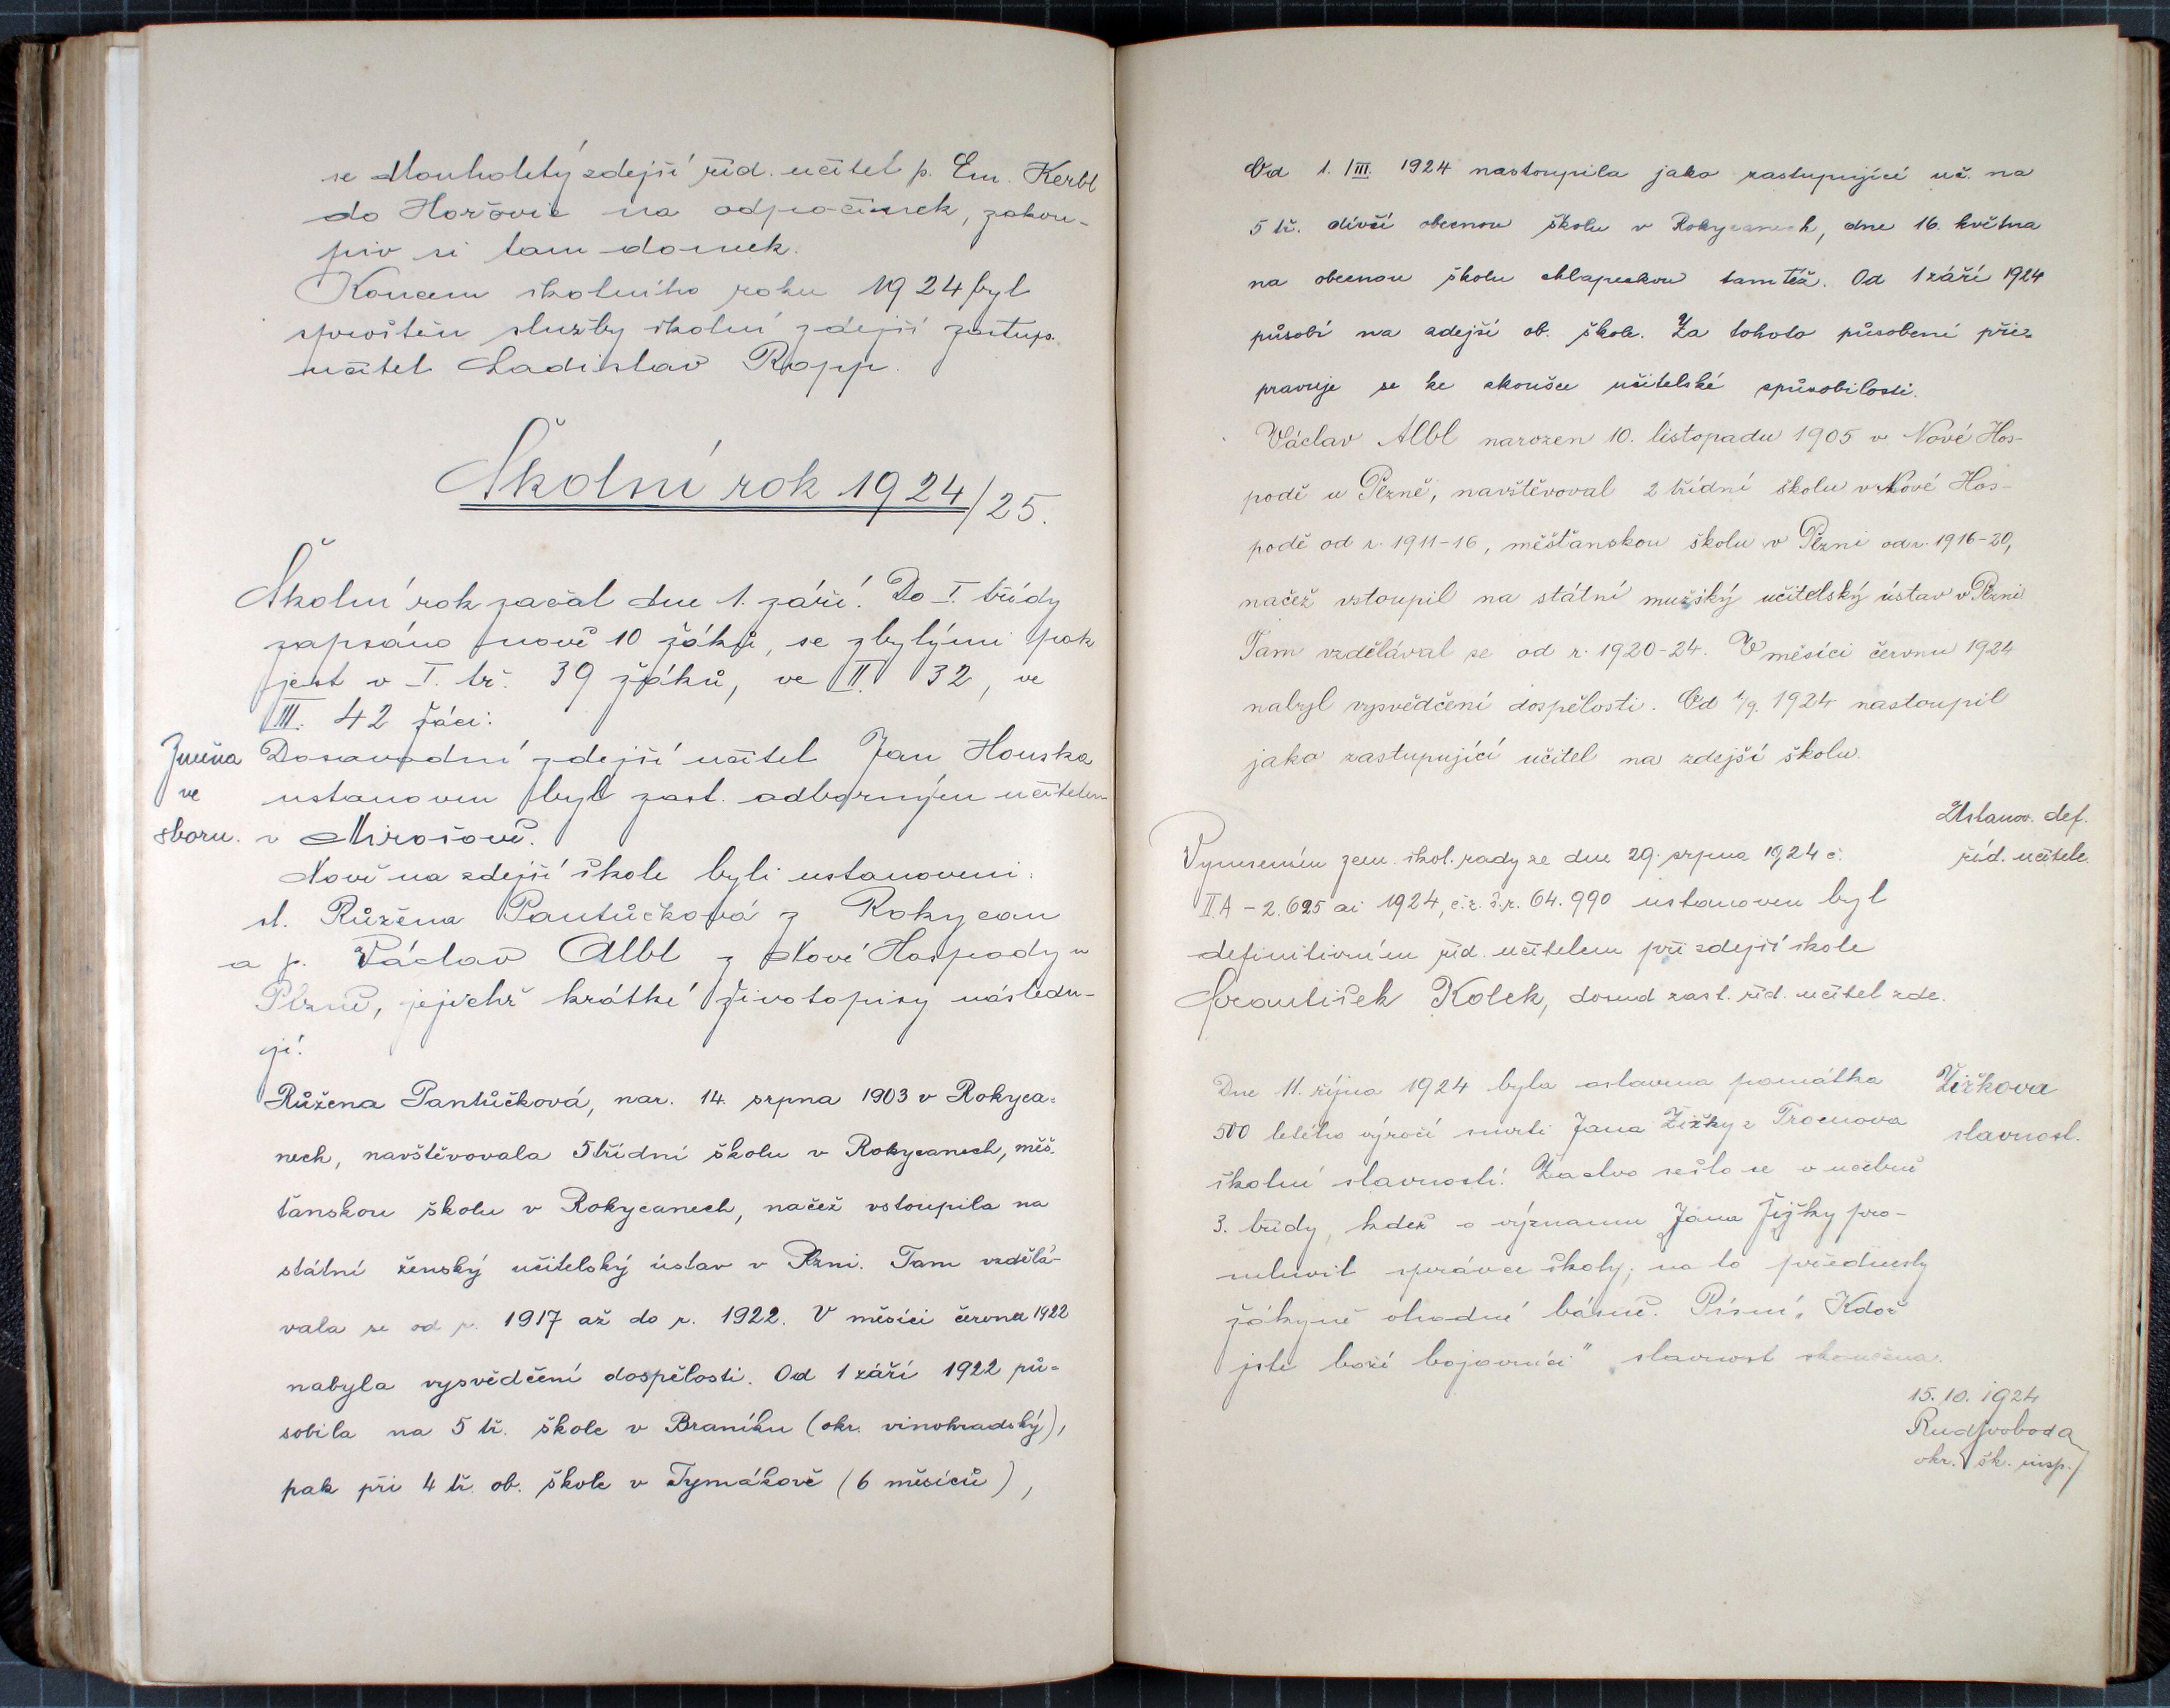 se dlouholetý zdejší říd. učitel p. Em. Kerbl
do Hořovic na odpočinek, zakou-
piv si tam domek.
Koncem školního roku 1924 byl
sproštěn služby školní zdejší zastup.
učitel Ladislav Ropp.
Školní rok 1924/25.
Školní rok začal dne 1. září. Do I. třídy
zapsáno nově 10 žáků, se zbylými pak
jest v I. tř. 39 žáků, ve II. 32, ve
III. 42 žáci.
Změna
ve
sboru.
Dosavadní zdejší učitel Jan Houska
ustanoven byl zast. odborným učitelem
v Mirošově.
Nově na zdejší škole byli ustanoveni:
sl. Růžena Pantůčková z Rokycan
a p. Václav Albl z Nové Hospody u
Plzně, jejichž krátké životopisy následu-
jí.
Růžena Pantůčková, nar. 14. srpna 1903 v Rokyca=
nech, navštěvovala 5třídní školu v Rokycanech, měš-
ťanskou školu v Rokycanech, načež vstoupila na
státní ženský učitelský ústav v Plzni. Tam vzdělá-
vala se od r. 1917 až do r. 1922. V měsíci červnu 1922
nabyla vysvědčení dospělosti. Od 1 září 1922 pů=
sobila na 5 tř. škole v Braníku (okr. vinohradský),
pak při 4 tř. ob. škole v Tymákově (6 měsíců),
Od 1. /III. 1924 nastoupila jako zastupující uč. na
5 tř. dívčí obecnou školu v Rokycanech, dne 16. května
na obecnou školu chlapeckou tamtéž. Od 1 září 1924
působí na zdejší ob. škole. Za tohoto působení při=
pravuje se ke zkoušce učitelské způsobilosti.
Václav Albl narozen 10. listopadu 1905 v Nové Hos-
podě u Plzně, navštěvoval 2 třídní školu v Nové Hos-
podě od r. 1911-16, měšťanskou školu v Plzni od r. 1916-20,
načež vstoupil na státní mužský učitelský ústav v Plzni
Tam vzdělával se od r. 1920-24. V měsíci červnu 1924
nabyl vysvědčení dospělosti. Od 1/9. 1924 nastoupil
jako zastupující učitel na zdejší školu.
Ustanov. def.
říd. učitele.
Vynesením zem. škol. rady ze dne 29. srpna 1924 č.
II.A - 2.625 ai 1924, č. z. š. r. 64.990 ustanoven byl
definitivním říd. učitelem při zdejší škole
František Kolek, dosud zast. říd. učitel zde.
Žižkova
slavnost.
Dne 11. října 1924 byla oslavena památka
500 letého výročí smrti Jana Žižky z Trocnova
školní slavností. Žactvo sešlo se v učebně
3. třídy, kdež o významu Jana Žižky pro-
mluvil správce školy; na to přednesly
žákyně vhodné básně. Písní „Kdož
jste boží bojovníci" slavnost skončena.
15. 10. 1924
Rud Svoboda
okr. šk. insp.